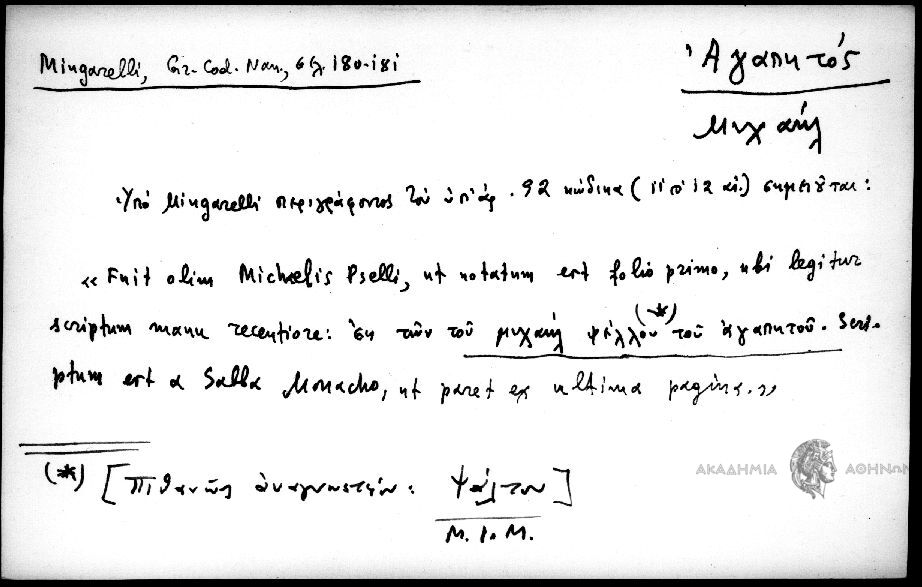 Mingarelli, Gr. Cod. Nan., σελ. 180-181
Ἀγαπητός
Μιχαήλ
Ὑπό Mingarelli περιγράφοντος τόν ὑπ' ἀρ. 92 κώδικα (11 12 αἰ.) σημειοῦται:
« Fuit olim Michaelis Pselli, ut notatum est folio primo, ubi legitur
scriptum manu recentiore: ἐκ τῶν τοῦ μιχαήλ ψέλλου (*) τοῦ ἀγαπητοῦ. Scri-
ptum est a Sabba Monacho, ut patet ex ultima pagina. »
(*) [Πιθανῶς ἀναγνωστέον: Ψάλτου]
Μ. Ι. Μ.
ΑΚΑΔΗΜΙΑ ΑΘΗΝΩΝ